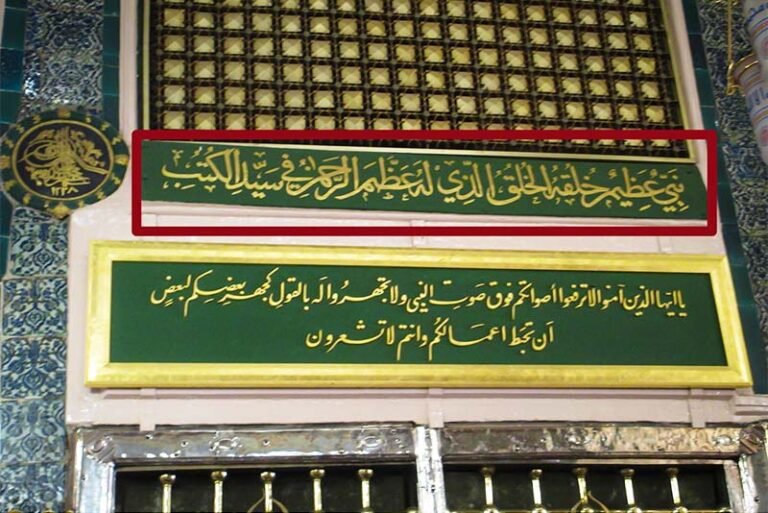 نَبِيٌّ عَظِيمٌ خُلْقُهُ الْخُلُقُ الَّذِي لَهُ عَظَّمَ الرَّحْمٰنُ فِي سَيِّدِ الْكُتُبِ
يا ايها الذين آمنوا لا ترفعوا أصواتكم فوق صوت النبي ولا تجهروا له بالقول كجهر بعضكم لبعض
ان تحبط اعمالكم وانتم لا تشعرون